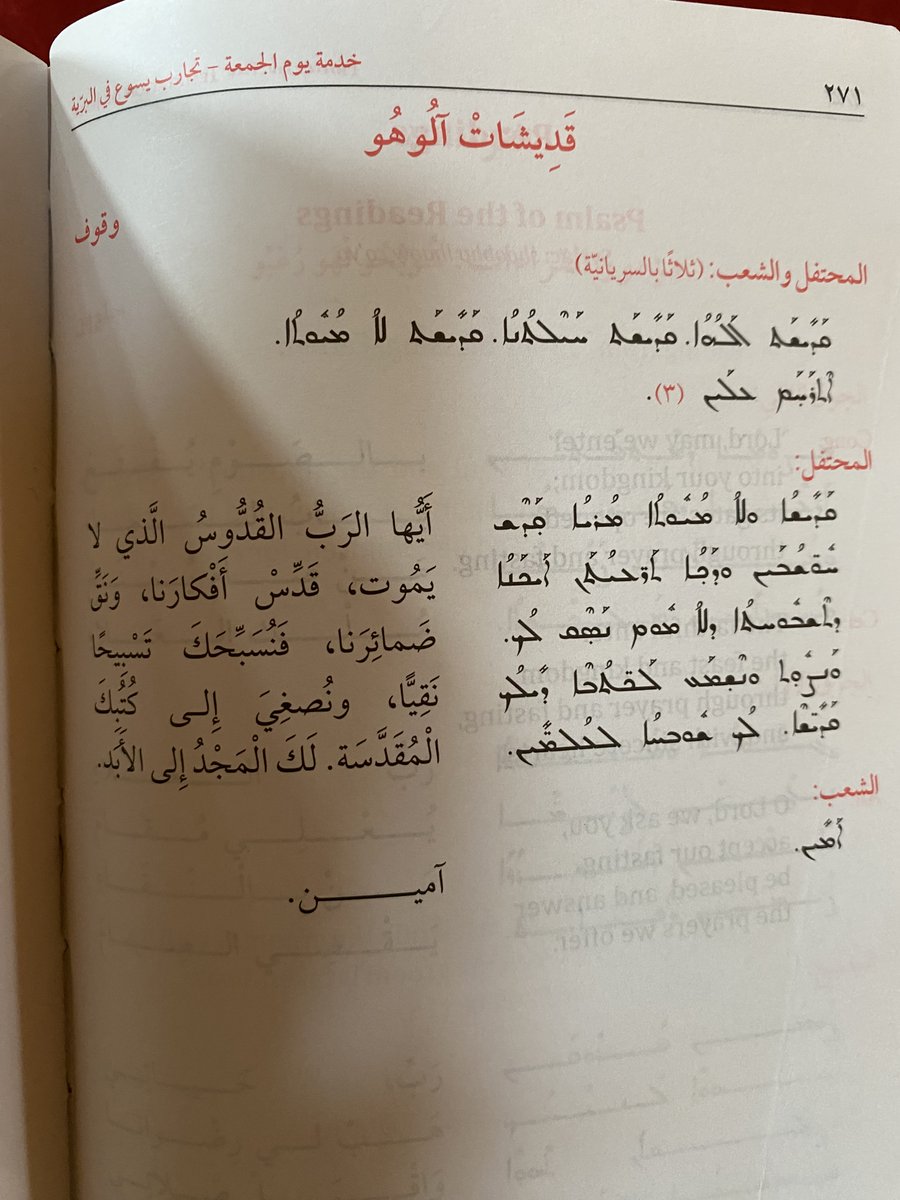 خدمة يوم الجمعة – تجارب يسوع في البرّية
٢٧١
قَدِيشَاتْ آلُوهُو
وقوف
المحتفل والشعب: (ثلاثًا بالسريانيّة)
ܩܰܕܺܝܫܰܬ ܐܰܠܳܗܳܐ. ܩܰܕܺܝܫܰܬ ܚܰܝܠܬܳܢܳܐ. ܩܰܕܺܝܫܰܬ ܠܳܐ ܡܳܝܽܘܬܳܐ.
ܐܶܬܪܰܚܰܡ ܥܠܰܝܢ (٣).
المحتفل:
ܩܰܕܺܝܫܳܐ ܘܠܳܐ ܡܳܝܽܘܬܳܐ ܡܳܪܝܳܐ ܩܰܕܶܫ
ܚܽܘܫ̈ܳܒܰܝܢ ܘܕܰܟܳܐ ܬܰܪܥܝܳܬܰܢ ܐܰܝܟܰܢܳܐ
ܕܬܶܫܒܽܘܚܬܳܐ ܕܠܳܐ ܡܽܘܡ ܢܰܣܶܩ ܠܳܟ.
ܘܰܢܨܽܘܬ ܘܢܶܫܡܰܥ ܠܰܟ̈ܬܳܒܶܐ ܕܺܝܠܳܟ
ܩܰܕ̈ܺܝܫܶܐ. ܠܳܟ ܫܽܘܒܚܳܐ ܠܥܳܠܡܺܝܢ.
أَيُّها الرَبُّ القُدُّوسُ الَّذي لا
يَمُوت، قَدِّسْ أَفْكارَنا، وَنَقِّ
ضَمائِرَنا، فَنُسَبِّحَكَ تَسْبِيحًا
نَقِيًّا، ونُصغِيَ إِلى كُتُبِكَ
الْمُقَدَّسَة. لَكَ الْمَجْدُ إِلى الأَبَد.
الشعب:
ܐܰܡܺܝܢ.
آميـــــن.